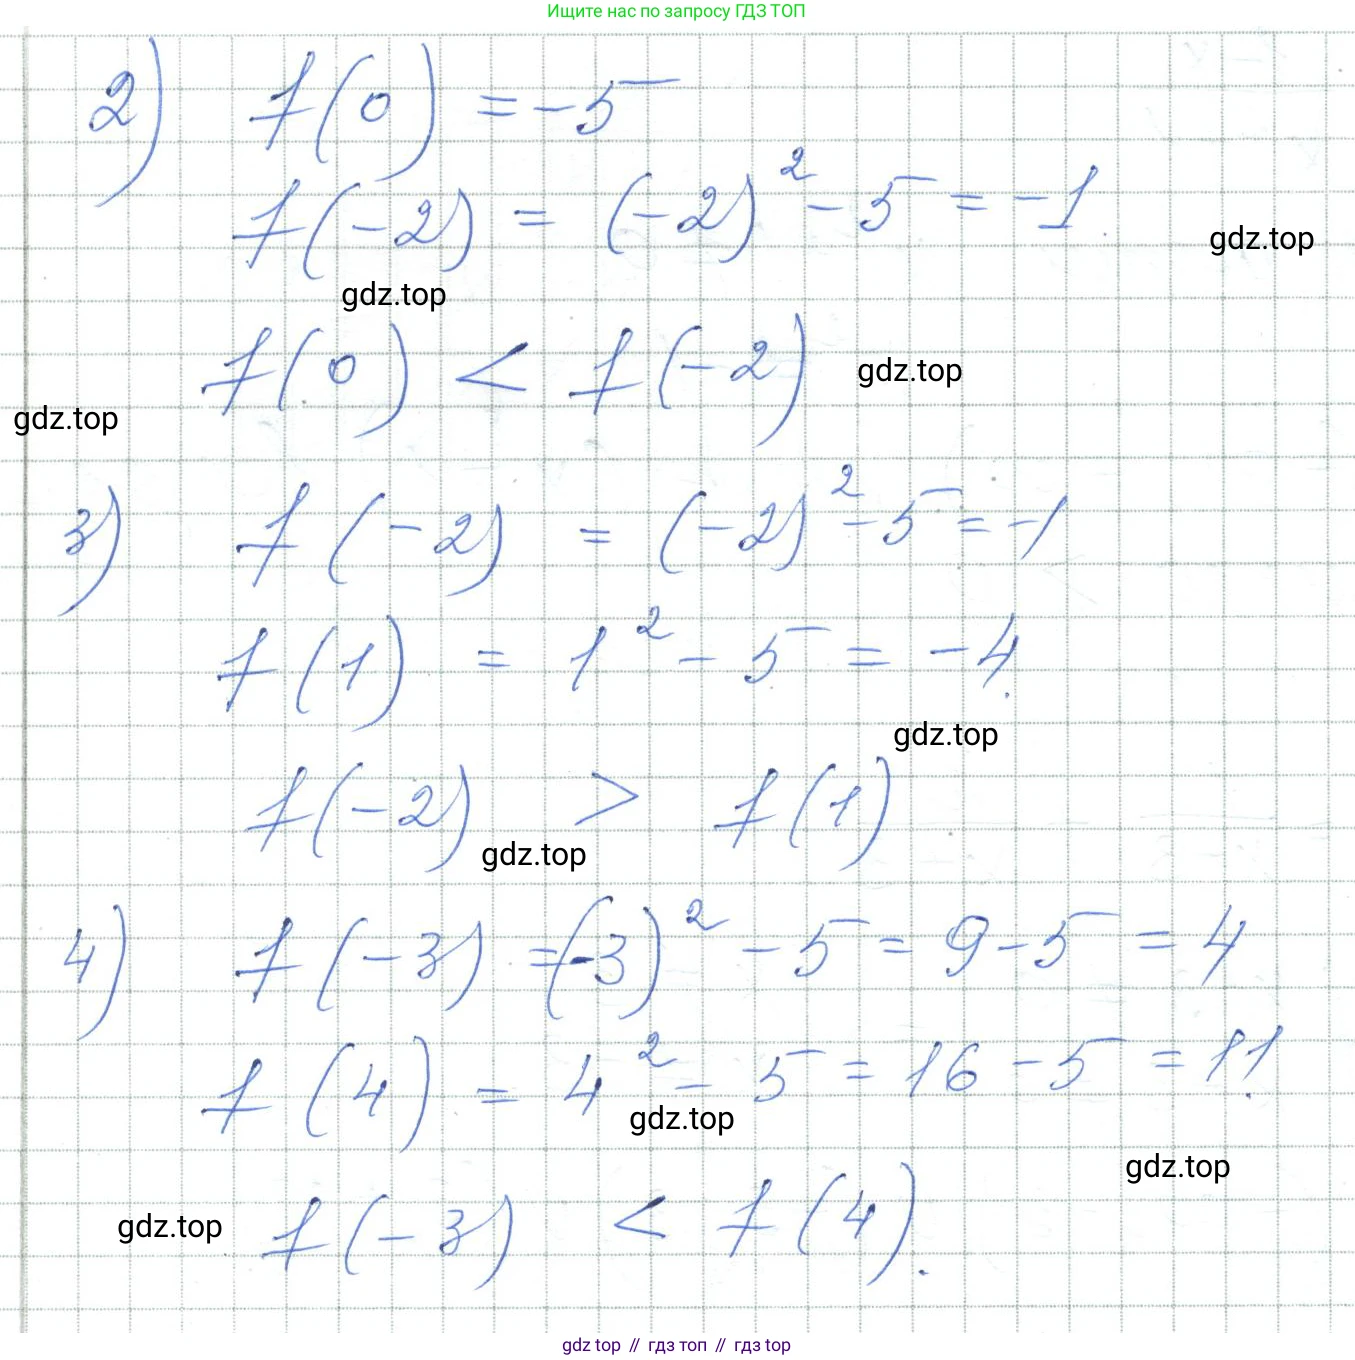 Ищите нас по запросу ГДЗ ТОП
2) f(0) = -5
f(-2) = (-2)² - 5 = -1.
gdz.top
gdz.top
f(0) < f(-2)
gdz.top
gdz.top
3) f(-2) = (-2)² - 5 = -1
f(1) = 1² - 5 = -4.
gdz.top
f(-2) > f(1)
gdz.top
4) f(-3) = (-3)² - 5 = 9 - 5 = 4
f(4) = 4² - 5 = 16 - 5 = 11.
gdz.top
gdz.top
f(-3) < f(4).
gdz.top
gdz top // гдз топ // гдз top